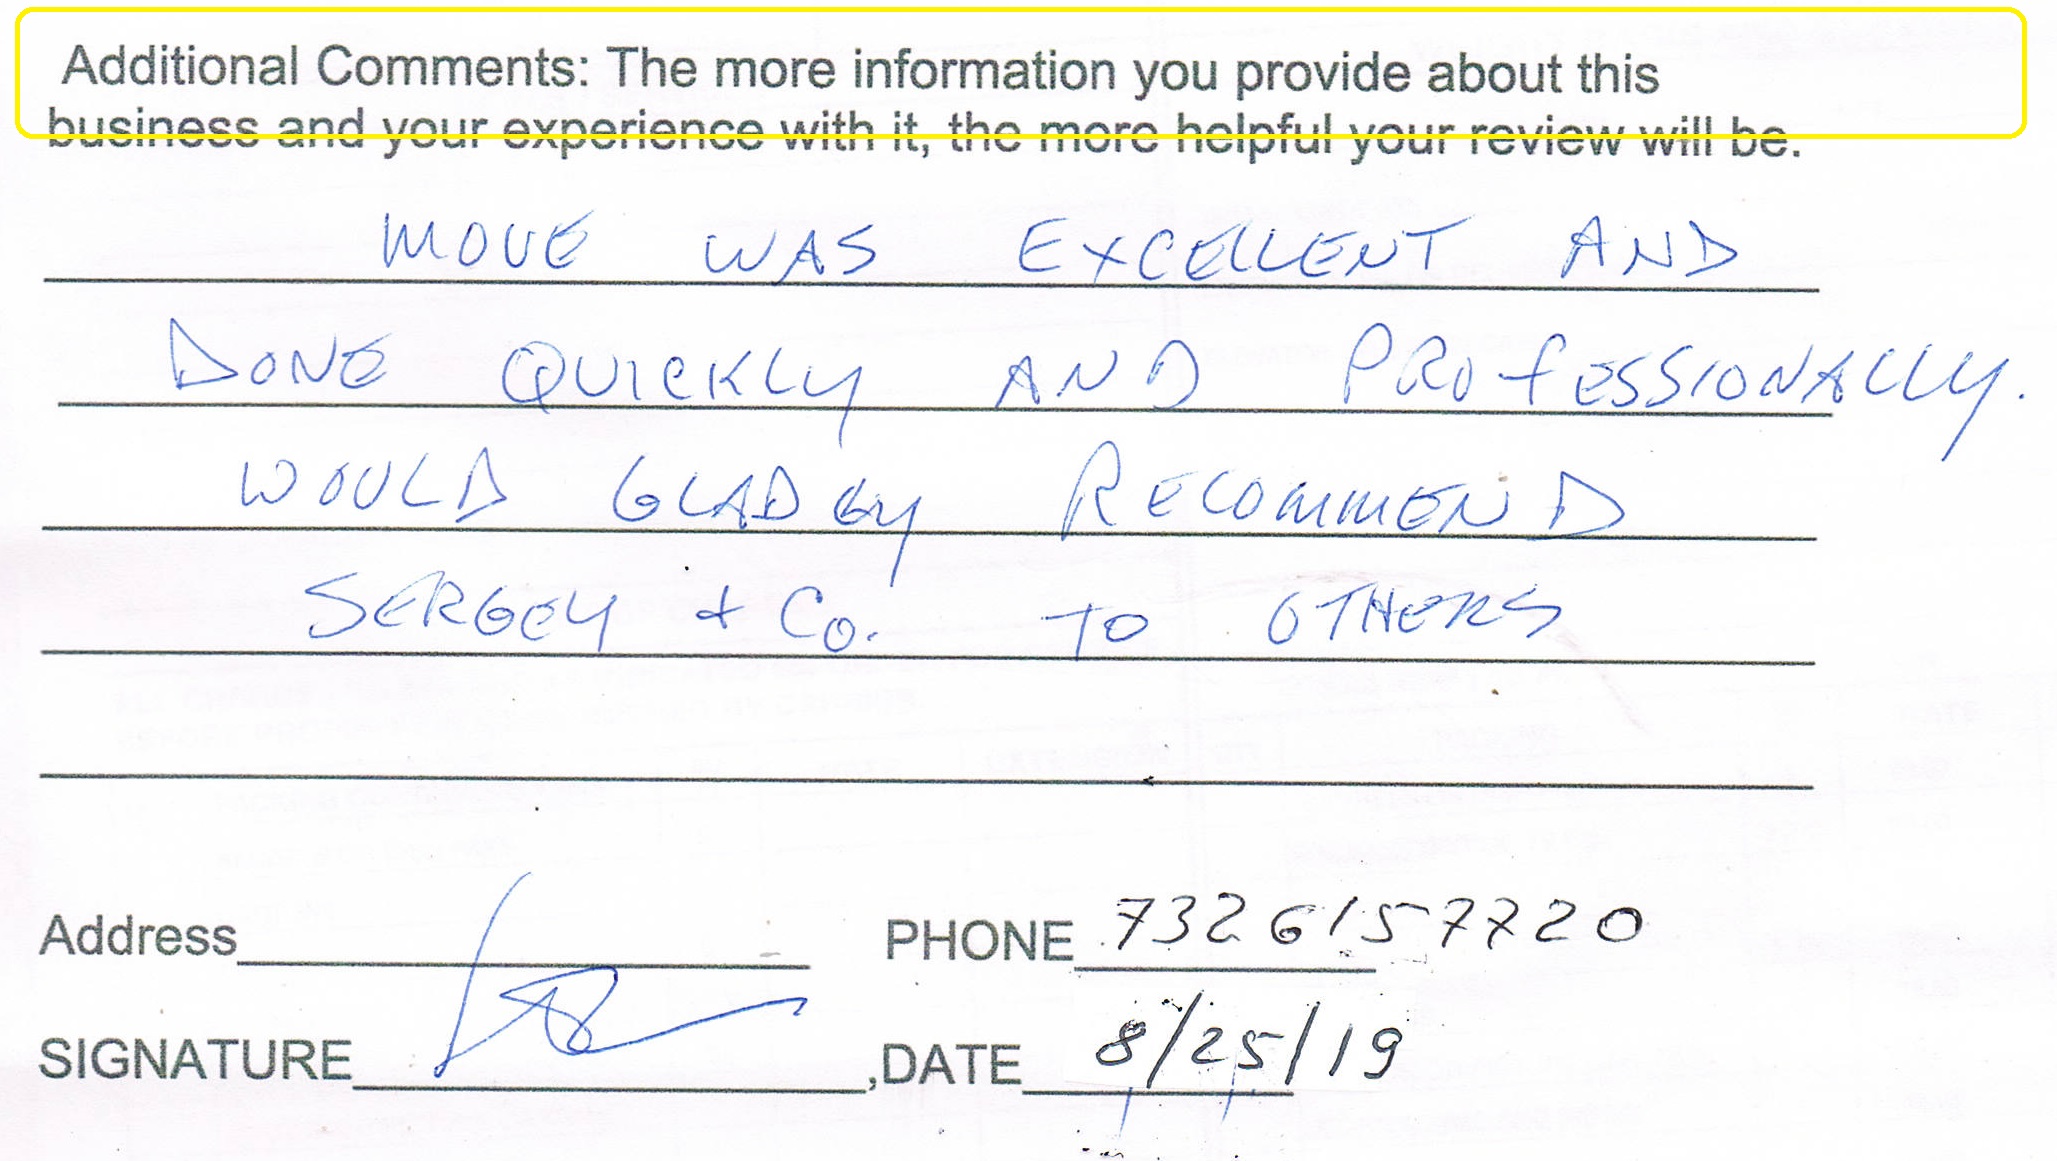 Additional Comments: The more information you provide about this
business and your experience with it, the more helpful your review will be.
MOVE WAS EXCELLENT AND
DONE QUICKLY AND PROfESSIONALLY.
WOULD GLADLY RECOMMEND
SERGEY + Co. TO OTHERS
Address PHONE 7326157720
SIGNATURE ,DATE 8/25/19